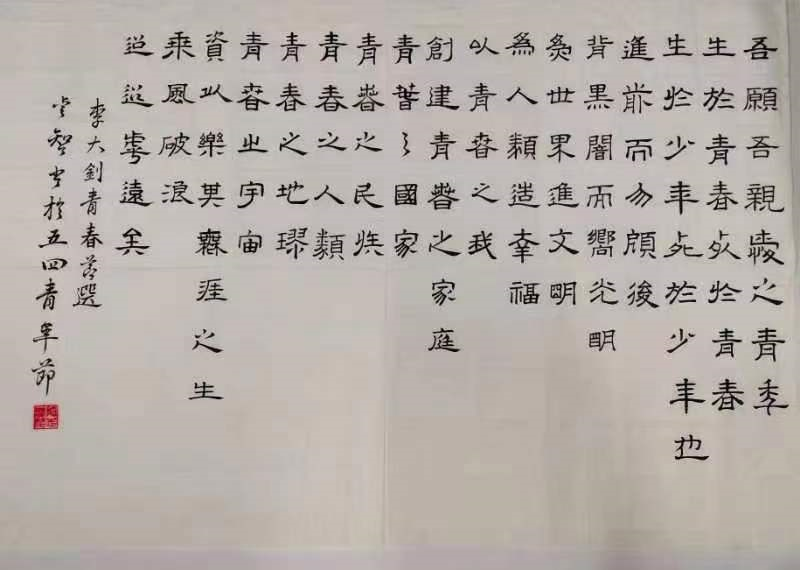 吾願吾親愛之青年
生於青春死於青春
生於少年死於少年也
進前而勿顧後
背黑闇而嚮光明
為世界進文明
為人類造幸福
以青春之我
創建青春之家庭
青春之國家
青春之民族
青春之人類
青春之地璆
青春之宇宙
資以樂其無涯之生
乘風破浪
迢迢乎遠矣
李大釗青春節選
智书於五四青年節